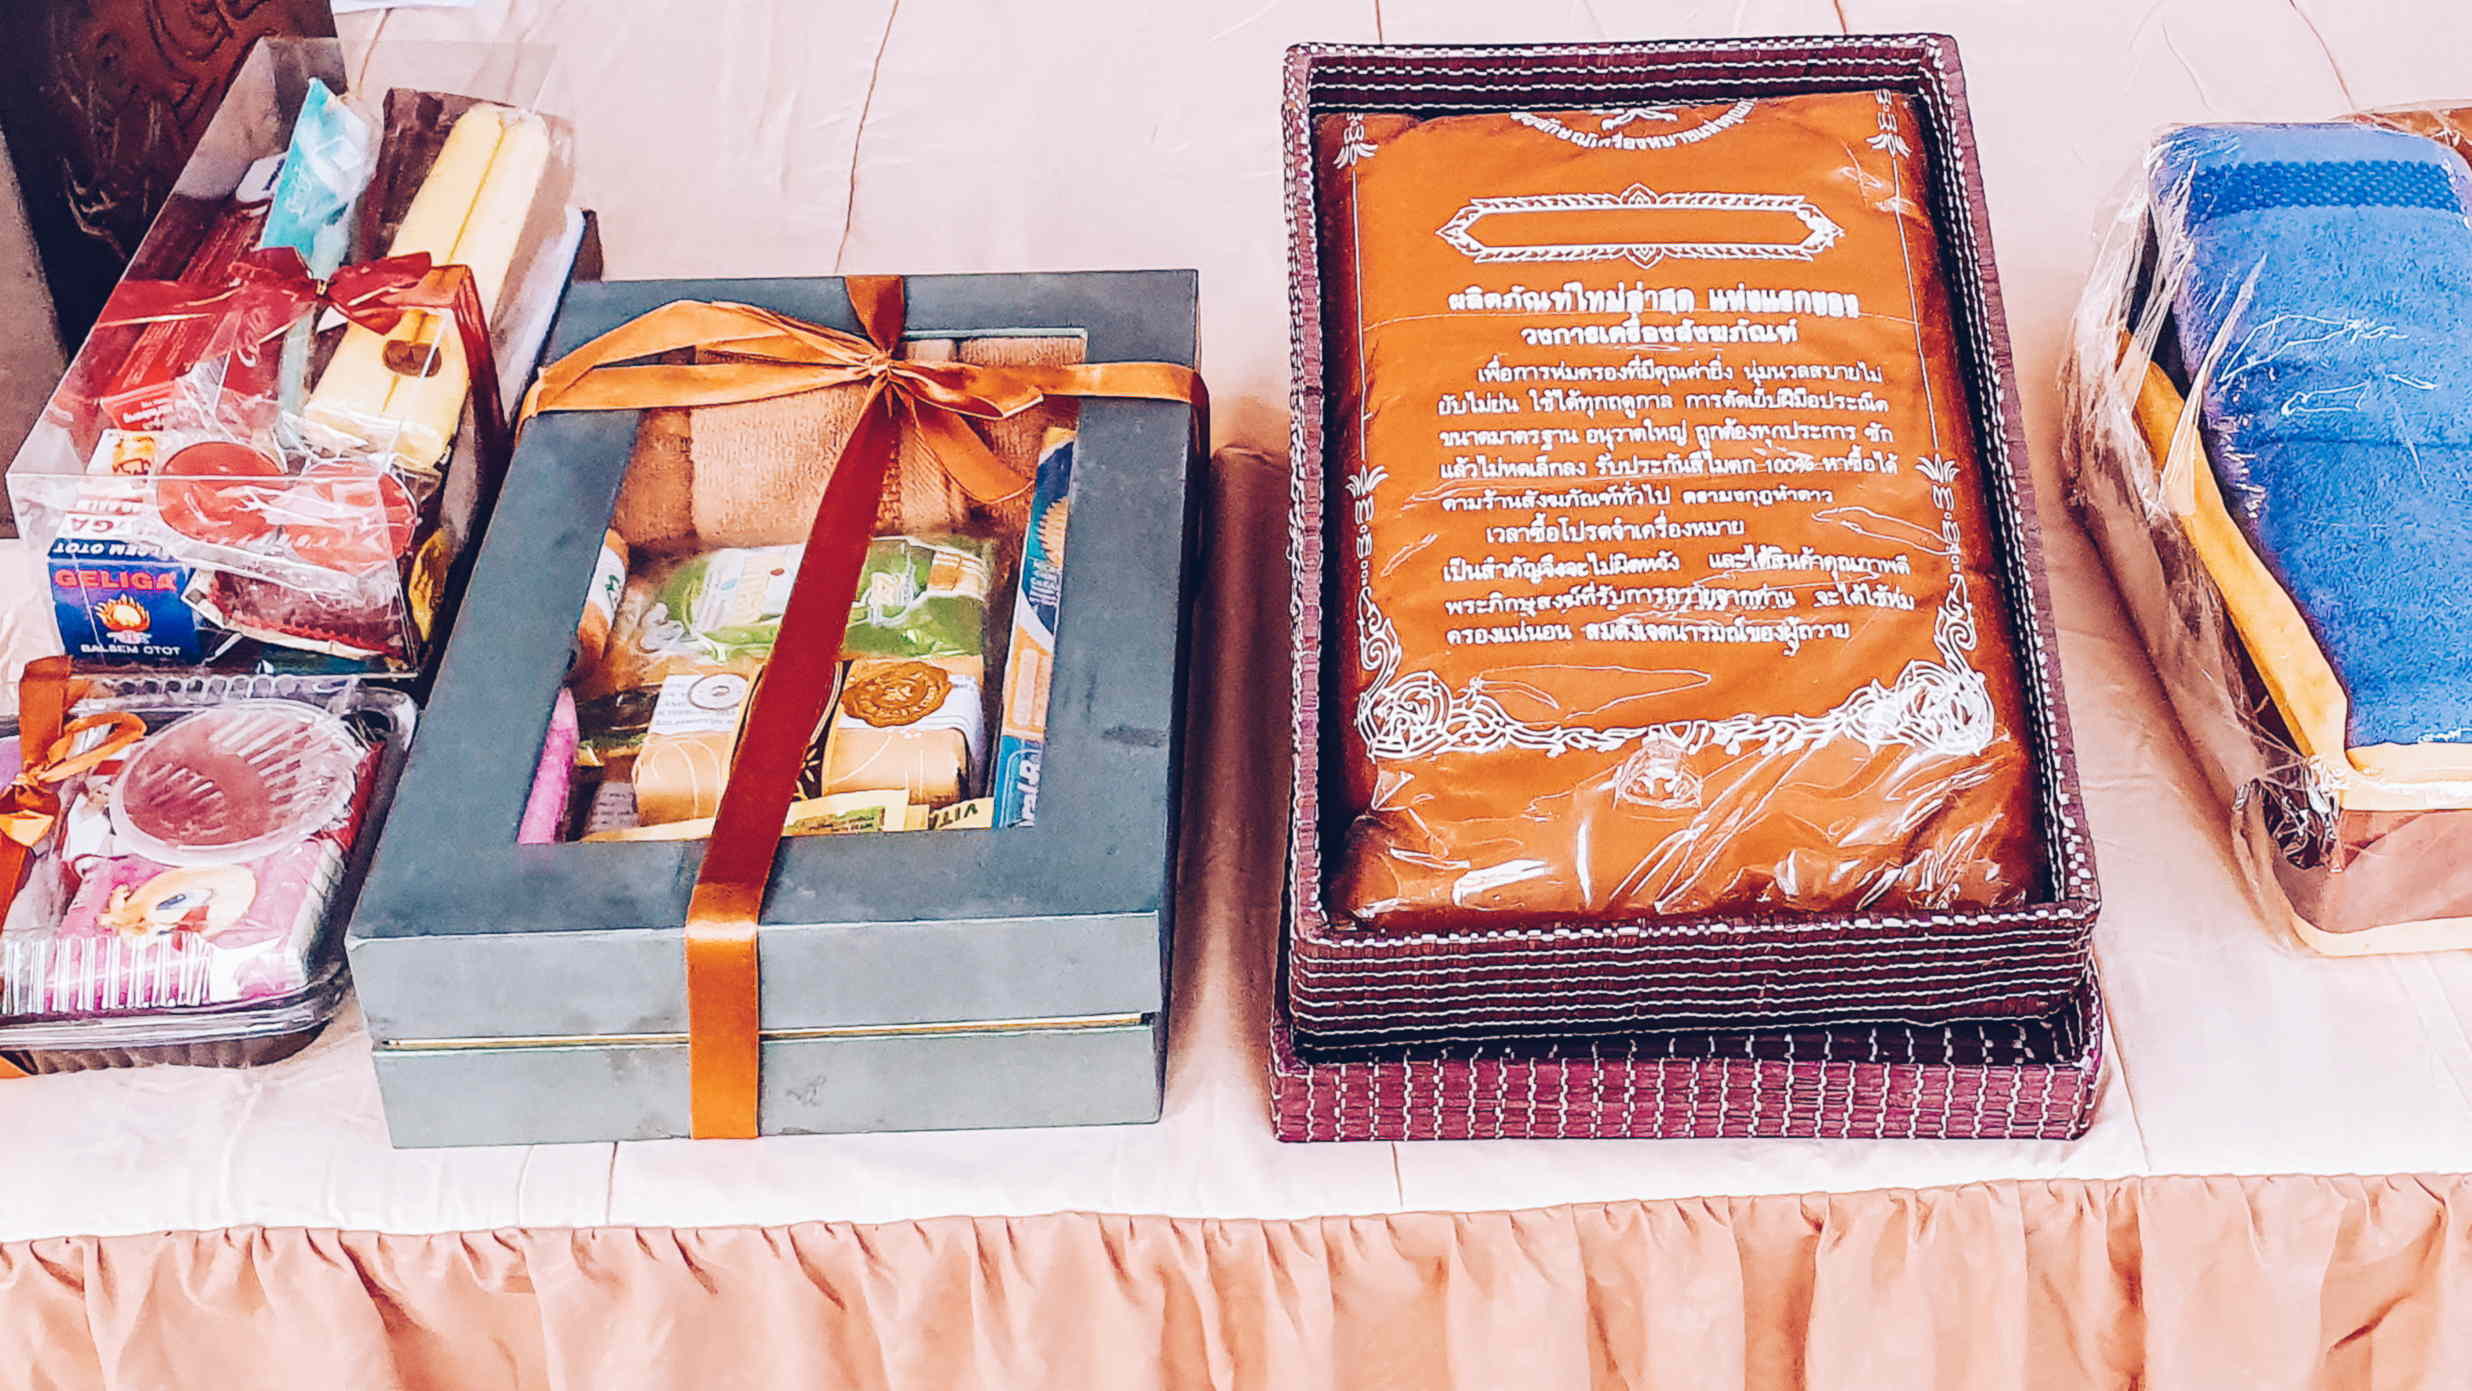 GELIGA
BALSEM OTOT
BALSEM OTOT
Oral-B
VITA
ผลิตภัณฑ์ใหม่ล่าสุด แห่งแรกของ
วงการเครื่องสังฆภัณฑ์
เพื่อการห่มครองที่มีคุณค่ายิ่ง นุ่มนวลสบายไม่
ยับไม่ย่น ใช้ได้ทุกฤดูกาล การตัดเย็บฝีมือประณีต
ขนาดมาตรฐาน อนุวาตใหญ่ ถูกต้องทุกประการ ซัก
แล้วไม่หดเล็กลง รับประกันสีไม่ตก 100% หาซื้อได้
ตามร้านสังฆภัณฑ์ทั่วไป ตรามงกุฎห้าดาว
เวลาซื้อโปรดจำเครื่องหมาย
เป็นสำคัญจึงจะไม่ผิดหวัง และได้สินค้าคุณภาพดี
พระภิกษุสงฆ์ที่รับการถวายจากท่าน จะได้ใช้ห่ม
ครองแน่นอน สมดังเจตนารมณ์ของผู้ถวาย